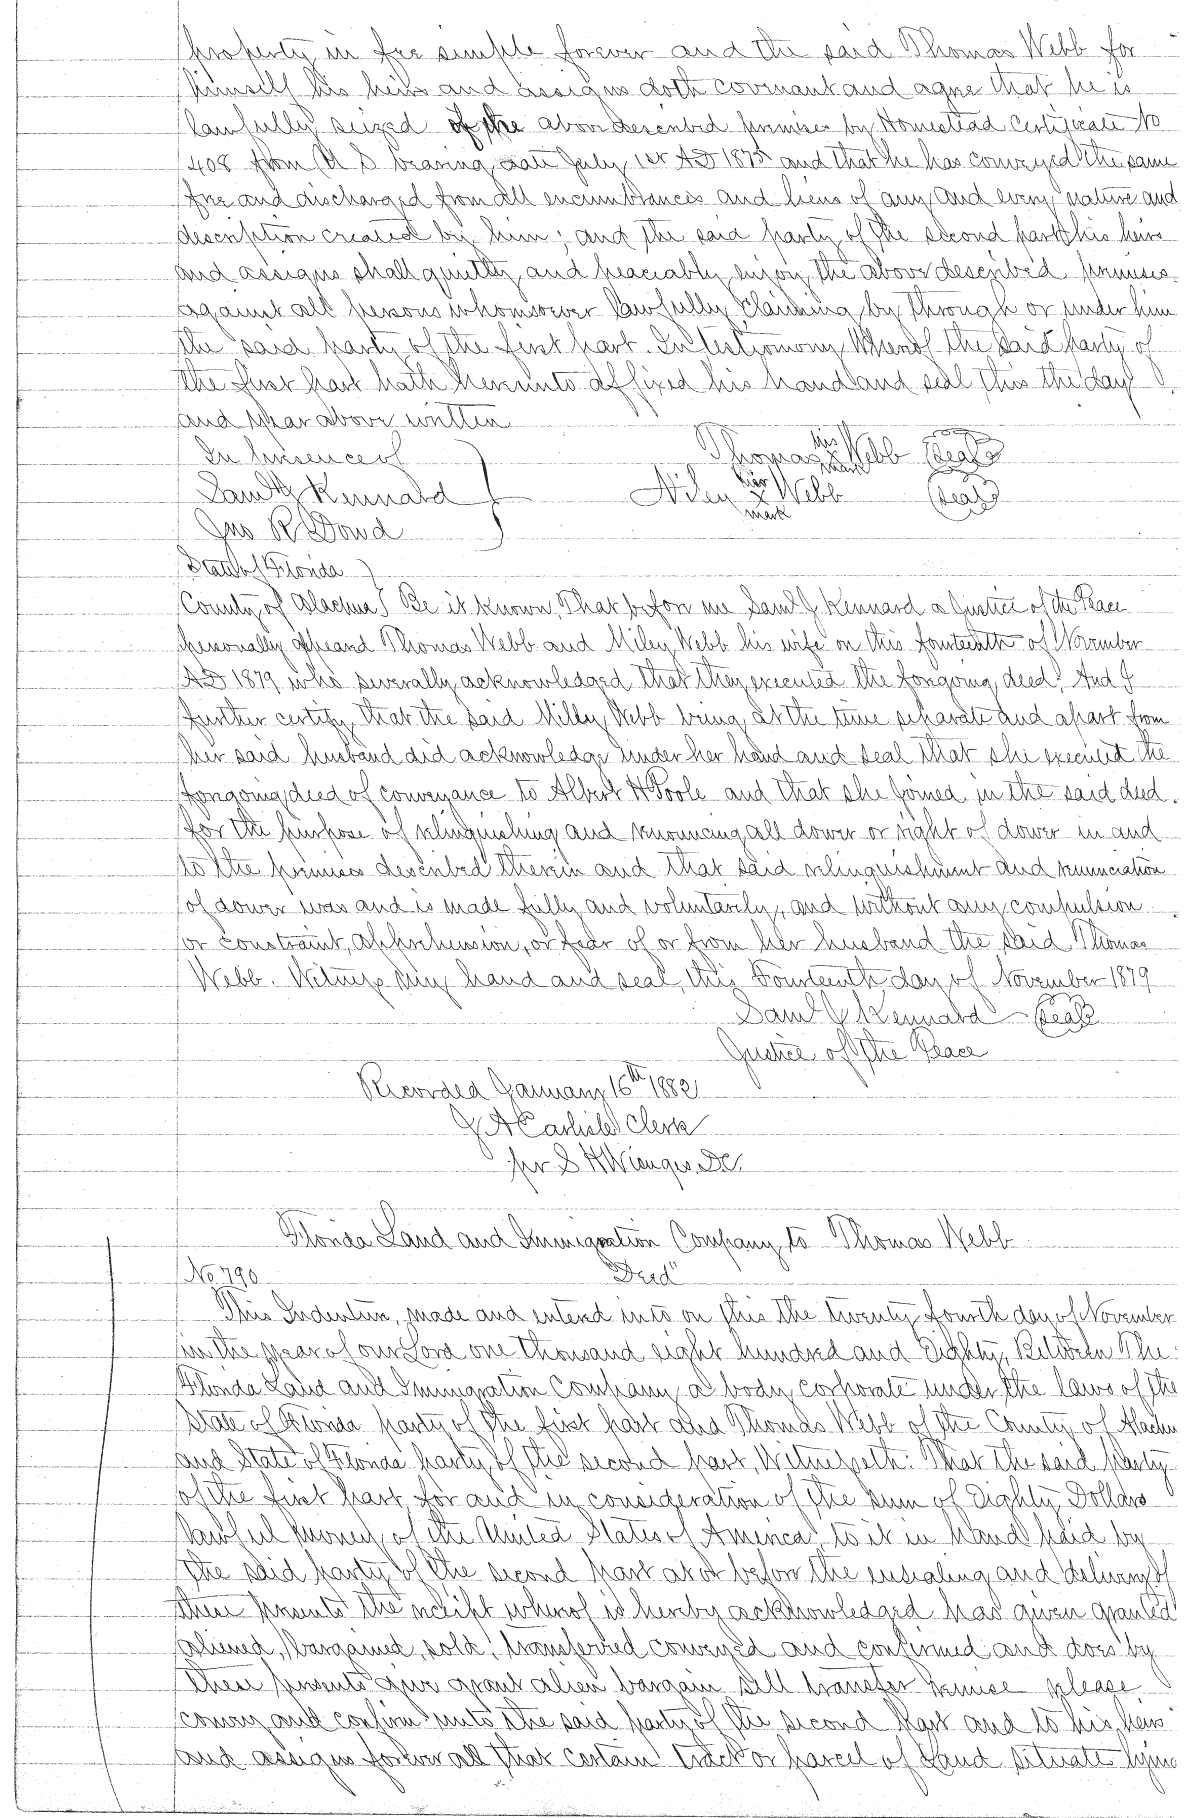 property in fee simple forever and the said Thomas Webb for
himself his heirs and assigns doth covenant and agree that he is
lawfully seized of the above described premises by Homestead Certificate No
408 from U S bearing date July 1st AD 1875 and that he has conveyed the same
free and discharged from all encumbrances and liens of any and every nature and
description created by him; and the said party of the second part his heirs
and assigns shall quietly and peaceably enjoy the above described premises
against all persons whomsoever lawfully claiming by through or under him
the said party of the first part. In testimony Whereof the said party of
the first part hath hereunto affixed his hand and seal this the day
and year above written
In presence of
Saml J Kennard
Jno R Dowd
Thomas his x mark Webb Seal
Miley her x mark Webb Seal
State of Florida
County of Alachua Be it known, That before me Saml J Kennard a Justice of the Peace
personally appeard Thomas Webb and Miley Webb his wife on this fourteenth of November
AD 1879 who severally acknowledged that they executed the foregoing deed. And I
further certify that the said Milley Webb being at the time separate and apart from
her said husband did acknowledge under her hand and seal that she executed the
foregoing deed of conveyance to Albert H Poole and that she joined in the said deed
for the purpose of relinquishing and renouncing all dower or right of dower in and
to the premises described therein and that said relinquishment and renunciation
of dower was and is made fully and voluntarily, and without any compulsion
or constraint, apprehension, or fear of or from her husband the said Thomas
Webb. Witness my hand and seal, this Fourteenth day of November 1879
Saml J Kennard Seal
Justice of the Peace
Recorded January 16th 1882
J A Carlisle Clerk
pr S H Wienges D.C.
Florida Land and Immigration Company to Thomas Webb
No 790 "Deed"
This Indenture, made and entered into on this the twenty fourth day of November
in the year of our Lord one thousand eight hundred and Eighty, Between The
Florida Land and Immigration Company a body corporate under the laws of the
State of Florida party of the first part and Thomas Webb of the County of Alachua
and State of Florida party of the second part, Witnesseth: That the said party
of the first part, for and in consideration of the sum of Eighty Dollars
lawful money of the United States of America, to it in hand paid by
the said party of the second part at or before the ensealing and delivery of
these presents the receipt whereof is hereby acknowledged has given granted
aliened, bargained, sold, transferred conveyed and confirmed and does by
these presents give grant alien bargain sell transfer remise release
convey and confirm unto the said party of the second part and to his heirs
and assigns forever all that certain tract or parcel of Land situate lying